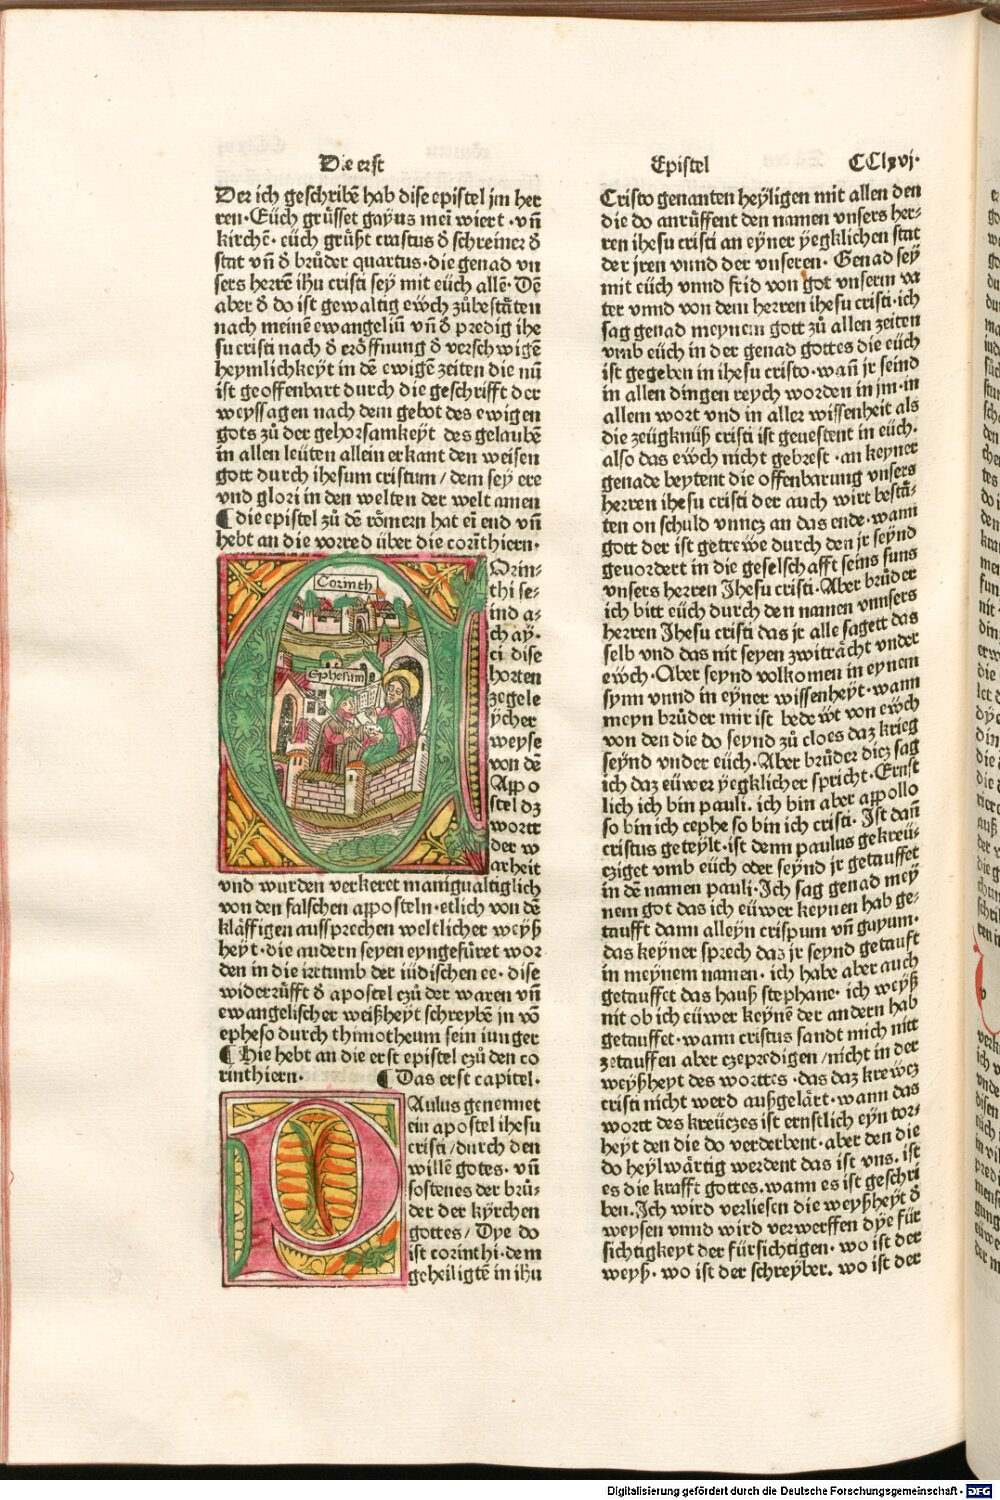 Die erst
Epistel
CClxvj·
Der ich geschribē hab dise epistel jm her
ren· Eüch grüsset gayus mei wiert · vn̄
kirchē· eüch grüßt erastus ð schreiner ð
stat vn̄ ð brůder quartus · die genad vn
sers herrē ihū cristi sey mit eüch allē· Dē
aber ð do ist gewaltig ewch zůbestäten
nach meinē ewangeliū vn̄ ð predig ihe
su cristi nach ð eröffnung ð verschwigē
heymlichkeyt in dē ewigē zeiten die nū
ist geoffenbart durch die geschrifft der
weyssagen nach dem gebot des ewigen
gots zů der gehorsamkeyt des gelaubē
in allen leüten allein erkant den weisen
gott durch ihesum cristum / dem sey ere
vnd glori in den welten der welt amen
¶ die epistel zů dē römern hat ei end vn̄
hebt an die vorred über die corīthiern·
Corinth
Ephesum
Orin-
thi se-
ind a-
chay·
ci dise
horten
zegele
ycher
weyse
von dē
Appo
stel dz
wortt
der w
arheit
vnd wurden verkeret manigualtiglich
von den falschen apposteln· etlich von dē
kläffigen aussprechen weltlicher weyß
heyt· die andern seyen eyngefüret wor
den in die irrtumb der iüdischen ee· dise
widerrüfft ð apostel czů der waren vn̄
ewangelischer weißheyt schreybē in vō
epheso durch thimotheum sein iunger
¶ Hie hebt an die erst epistel czů den co
rinthiern· ¶ Das erst capitel·
PAulus genennet
ein apostel ihesu
cristi / durch den
willē gotes· vn̄
sostenes der brů-
der der kyrchen
gottes / Dye do
ist corinthi· dem
geheiligtē in ihū
Cristo genanten heyligen mit allen den
die do anrüffent den namen vnsers her-
ren ihesu cristi an eyner yegklichen stat
der jren vnnd der vnseren· Genad sey
mit eüch vnnd frid von got vnserm va
ter vnnd von dem herren ihesu cristi· ich
sag genad meynem gott zů allen zeiten
vmb eüch in der genad gottes die eüch
ist gegeben in ihesu cristo· wan̄ jr seind
in allen dingen reych worden in jm· in
allem wort vnd in aller wissenheit als
die zeügknüß cristi ist geuestent in eüch·
also das ewch nicht gebrest · an keyner
genade beytent die offenbarung vnsers
herren ihesu cristi der auch wirt bestä-
ten on schuld vnncz an das ende· wann
gott der ist getrewe durch den jr seynd
geuordert in die geselschafft seins suns
vnsers herren Jhesu cristi· Aber brůder
ich bitt eüch durch den namen vnnsers
herren Jhesu cristi das jr alle sagett das
selb vnd das nit seyen zwiträcht vnder
ewch· Aber seynd volkomen in eynem
synn vnnd in eyner wissenheyt· wann
meyn brůder mir ist bedewt von ewch
von den die do seynd zů cloes daz krieg
seynd vnder eüch· Aber brůder dicz sag
ich daz eüwer yegklicher spricht· Ernst
lich ich bin pauli. ich bin aber appollo
so bin ich cephe so bin ich cristi· Ist dan̄
cristus geteylt· ist denn paulus gekreü-
cziget vmb eüch oder seynd jr getauffet
in dē namen pauli· Ich sag genad mey
nem got das ich eüwer keynen hab ge-
taufft dann alleyn crispum vn̄ guyum·
das keyner sprech daz jr seynd getauft
in meynem namen· ich habe aber auch
getauffet das hauß stephane· ich weyß
nit ob ich eüwer keynē der andern hab
getauffet· wann cristus sandt mich nitt
zetauffen aber czepredigen / nicht in der
weyßheyt des worttes · das daz krewcz
cristi nicht werd außgelärt· wann das
wortt des kreüczes ist ernstlich eyn tor-
heyt den die do verderbent· aber den die
do heylwärtig werdent das ist vns. ist
es die krafft gottes. wann es ist geschri
ben. Ich wird verliesen die weyßheyt ð
weysen vnnd wird verwerffen dye für
sichtigkeyt der fürsichtigen· wo ist der
weyß· wo ist der schreyber. wo ist der
Digitalisierung gefördert durch die Deutsche Forschungsgemeinschaft · DFG